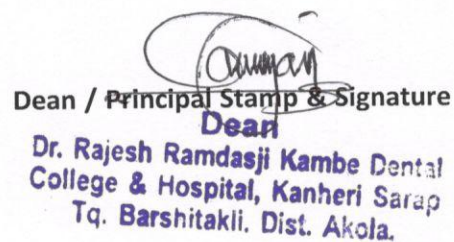 Dean / Principal Stamp & Signature
Dean
Dr. Rajesh Ramdasji Kambe Dental
College & Hospital, Kanheri Sarap
Tq. Barshitakli. Dist. Akola.